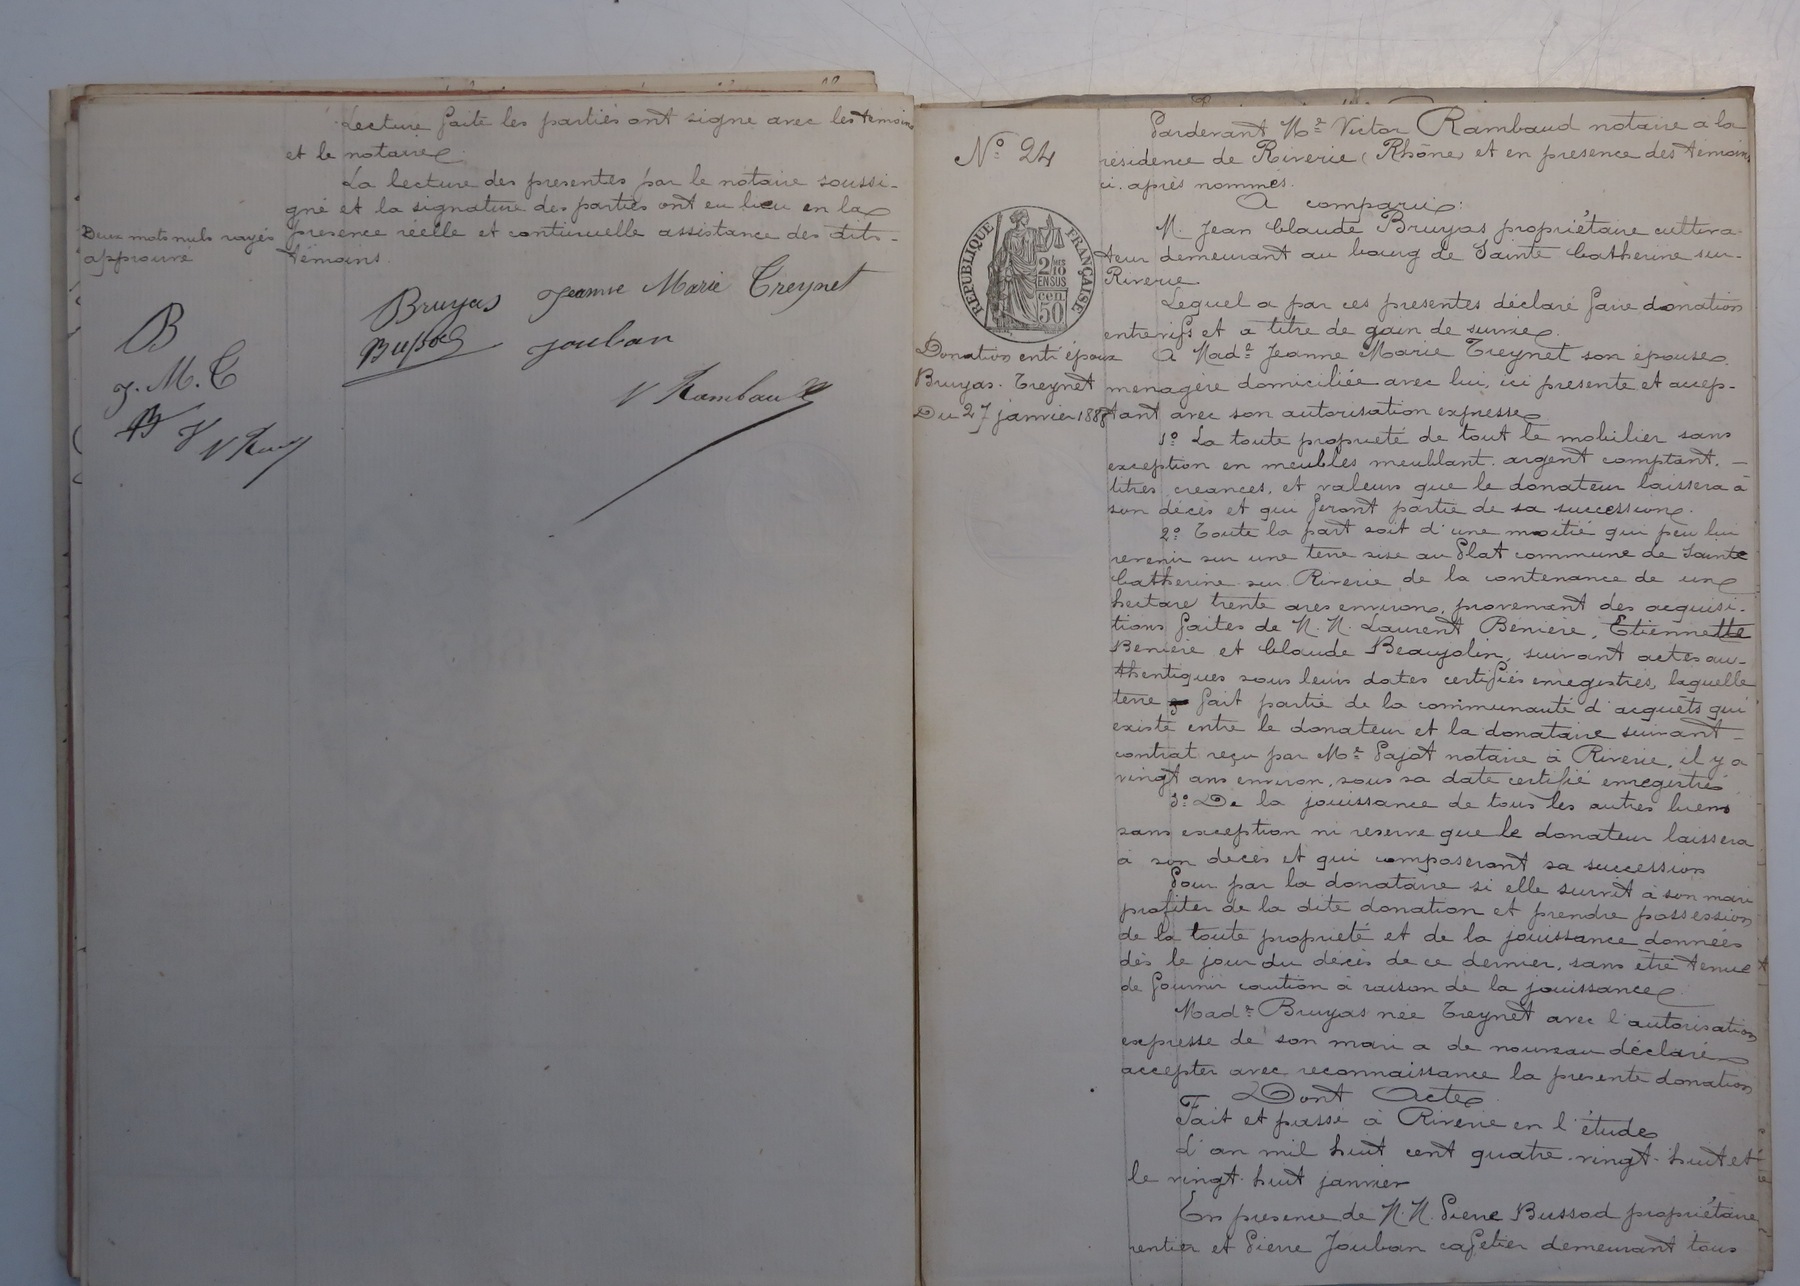 Lecture faite les parties ont signé avec les témoins
et le notaire
La lecture des presentes par le notaire soussi-
gné et la signature des parties ont eu lieu en la
presence réelle et continuelle assistance des dits-
témoins.
Deux mots nuls rayés
approuvé
Bruyas Jeanne Marie Treynet
Bussod Jouban
V Rambaud
B
J. M. T
B J V Ram
N° 24
REPUBLIQUE FRANÇAISE
2/10
EN SUS
50
Donation enti époux
Bruyas. Treynet
Du 27 janvier 1888
Pardevant Me Victor Rambaud notaire a la
résidence de Riverie (Rhône) et en presence des témoins
ci. après nommés.
A comparu:
M. Jean Claude Bruyas propriétaire cultiva-
teur demeurant au bourg de Sainte Catherine sur-
Riverie
Lequel a par ces presentes déclaré faire donation
entrevifs et a titre de gain de survie
A Made Jeanne Marie Treynet son épouse
menagère domiciliée avec lui, ici presente et accep-
tant avec son autorisation expresse
1° La toute propriété de tout le mobilier sans
exception en meubles meublant. argent comptant. —
titres créances, et valeurs que le donateur laissera à
son décès et qui feront partie de sa succession.
2° Toute la part soit d'une moitié qui peu lui
revenir sur une terre sise au Plat commune de Sainte
Catherine sur Riverie de la contenance de un
hectare trente ares environ, provenant des acquisi-
tions faites de M. M. Laurent Benière, Etiennette
Benière et Claude Beaujolin, suivant actes au-
thentiques sous leurs dates certifiés enregistrés, laquelle
terre fait partie de la communauté d'acquêts qui
existe entre le donateur et la donataire suivant-
contrat reçu par Me Pajot notaire à Riverie, il y a
vingt ans environ, sous sa date certifié enregistré
3° De la jouissance de tous les autres biens
sans exception ni reserve que le donateur laissera
à son décès et qui composeront sa succession
Pour par la donataire si elle survit à son mari
profiter de la dite donation et prendre possession
de la toute propriété et de la jouissance données
dès le jour du décès de ce dernier, sans être tenue
de fournir caution à raison de la jouissance
Made Bruyas née Treynet avec l'autorisation
expresse de son mari a de nouveau déclaré
accepter avec reconnaissance la presente donation
Dont Acte
Fait et passé à Riverie en l'étude
L'an mil huit cent quatre-vingt-huit et
le vingt-huit janvier
En presence de M. M. Pierre Bussod propriétaire
rentier et Pierre Jouban cafetier demeurant tous